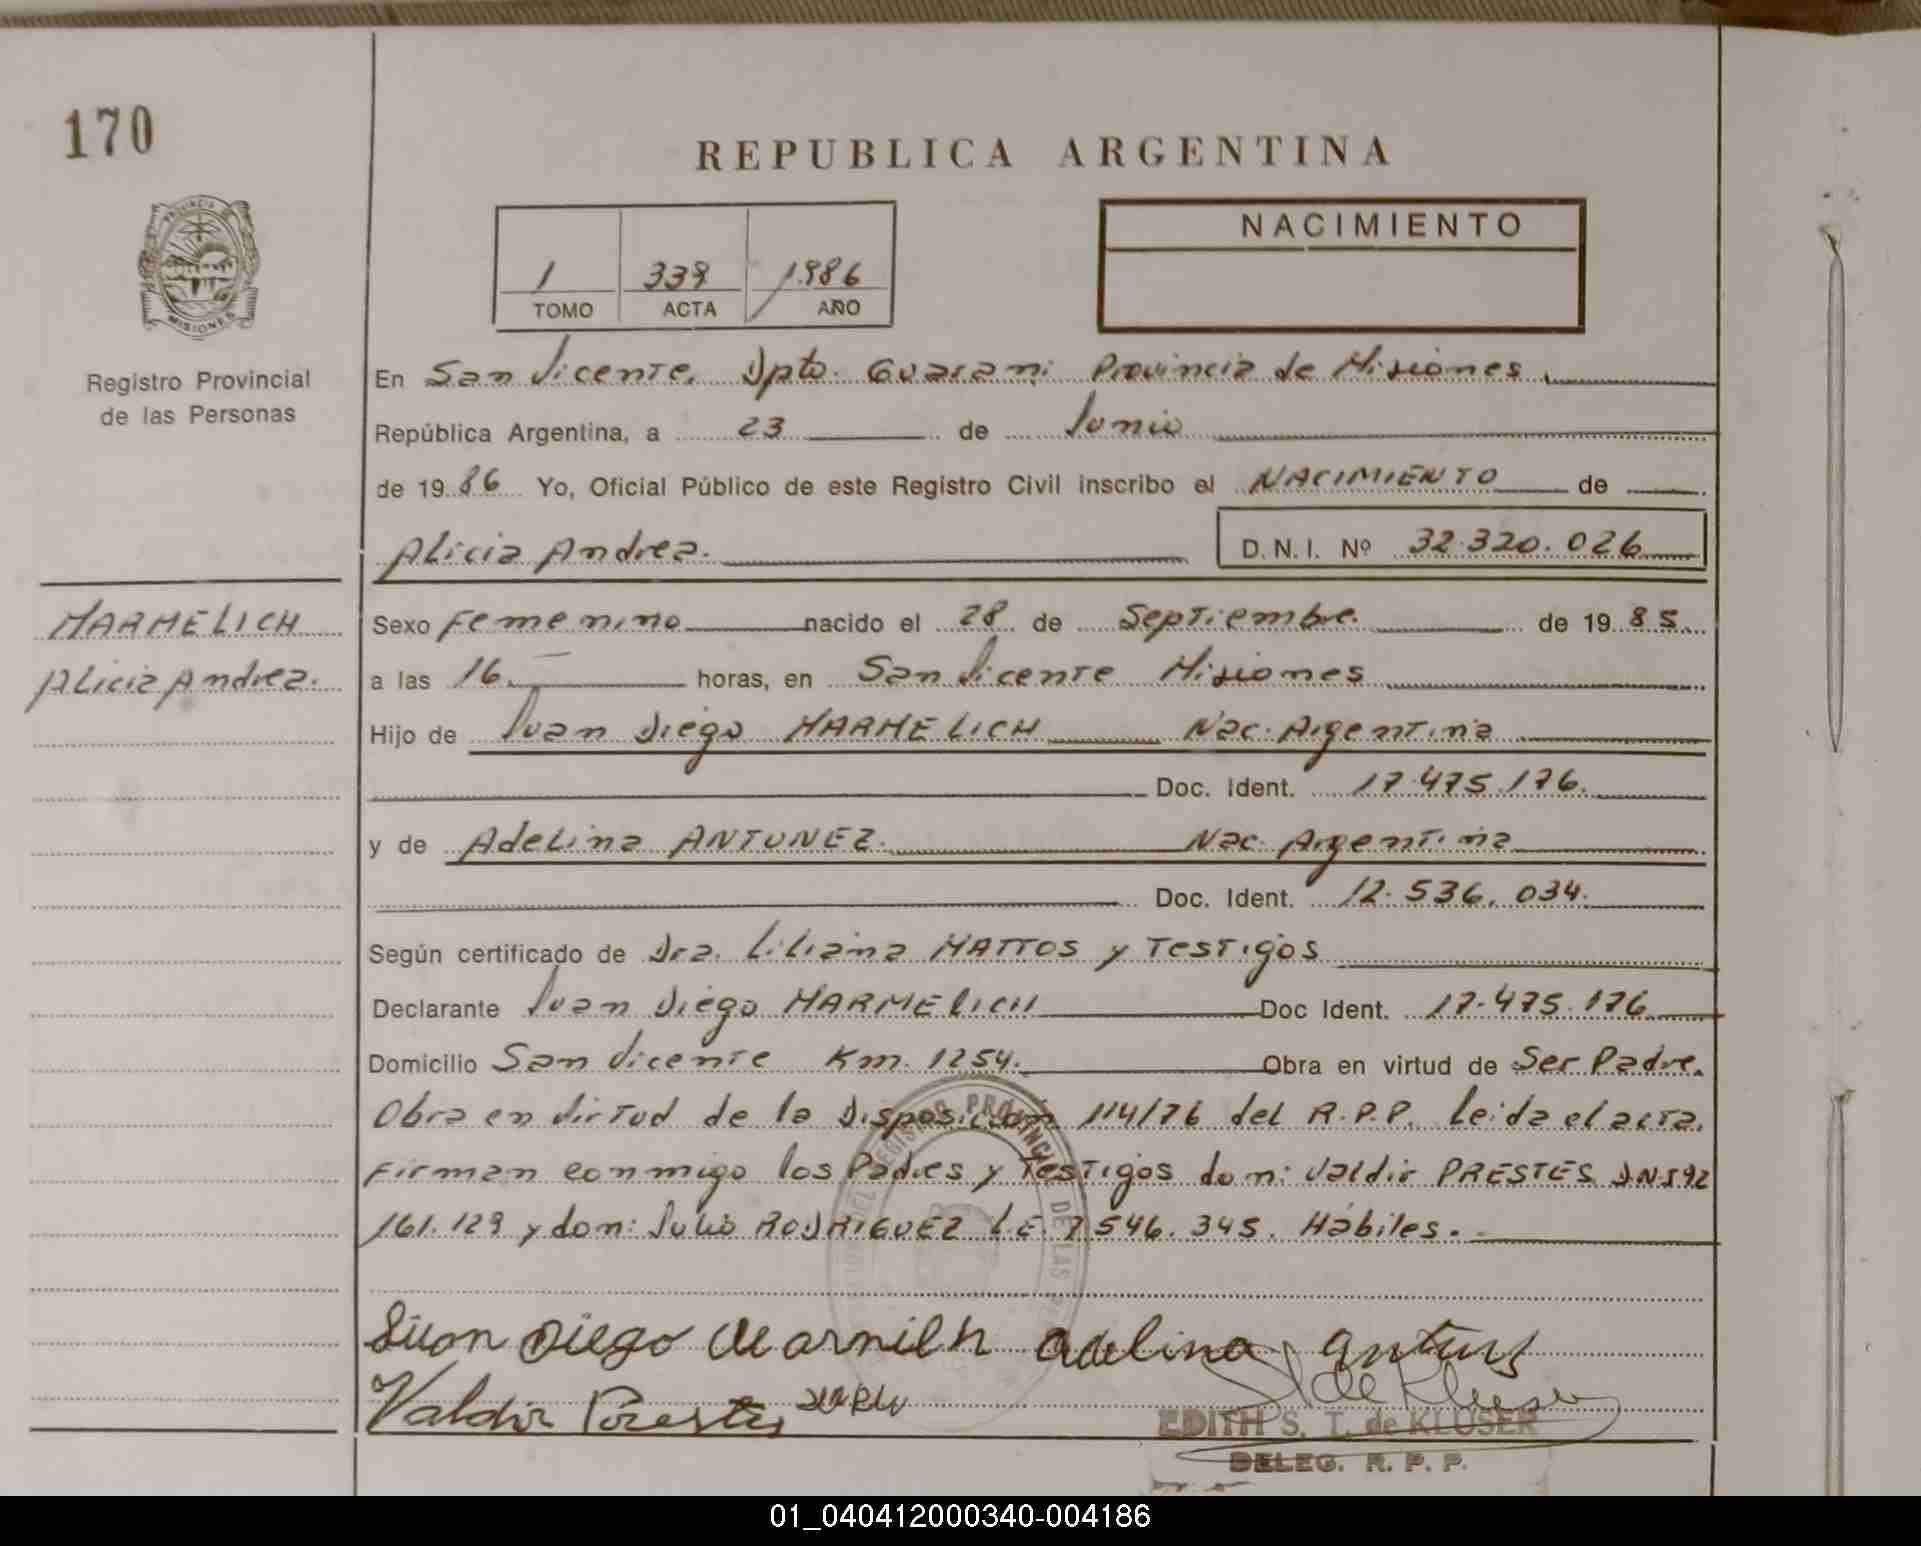 170
REPUBLICA ARGENTINA
PROVINCIA
MISIONES
Registro Provincial
de las Personas
1 339 1.986
TOMO ACTA AÑO
NACIMIENTO
En San Vicente, Dpto. Guarani Provincia de Misiones
República Argentina, a 23 de Junio
de 19 86 Yo, Oficial Público de este Registro Civil inscribo el NACIMIENTO de
Alicia Andrea. D. N. I. Nº 32.320.026
MARMELICH
Alicia Andrea.
Sexo Femenino nacido el 28 de Septiembre. de 19 85
a las 16. horas, en San Vicente Misiones
Hijo de Juan Diego MARMELICH Nac. Argentina
Doc. Ident. 17.475.176.
y de Adelina ANTUNEZ. Nac. Argentina
Doc. Ident. 12.536.034.
Según certificado de Dra. Liliana MATTOS y Testigos
Declarante Juan Diego MARMELICH Doc Ident. 17.475.176
Domicilio San Vicente Km. 1254. Obra en virtud de Ser Padre.
Obra en Virtud de la Disposición 114/76 del R.P.P. Leida el acta,
Firman conmigo los Padres y Testigos don: Valdir PRESTES DNI 92
161.129 y don: Julio RODRIGUEZ L.E. 7.546.345. Hábiles.
Juan Diego Marmilh Adelina
Valdir Prestes
EDITH S. T. de KLUSER
DELEG. R. P. P.
01_040412000340-004186